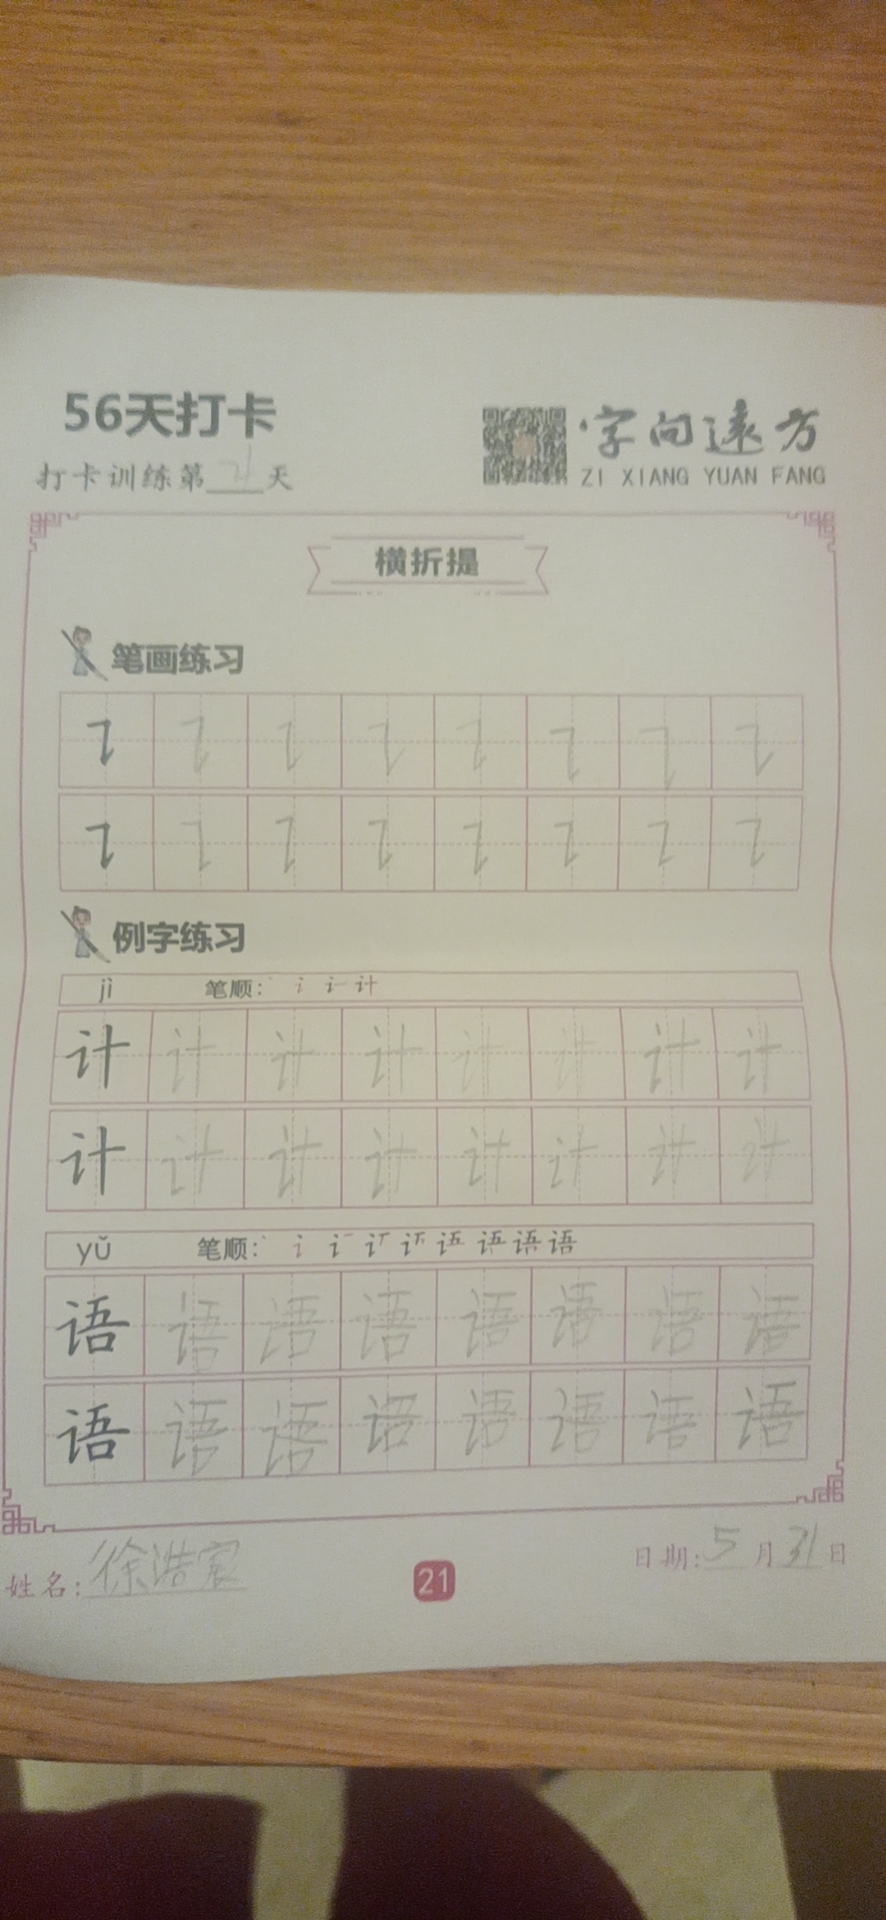 56天打卡
字向远方
打卡训练第21天
ZI XIANG YUAN FANG
横折提
笔画练习
例字练习
jì 笔顺：
计 计 计 计 计 计 计 计
计 计 计 计 计 计 计 计
yǔ 笔顺：
语 语 语 语 语 语 语 语
语 语 语 语 语 语 语 语
姓名：徐浩宸
21
日期：5月31日